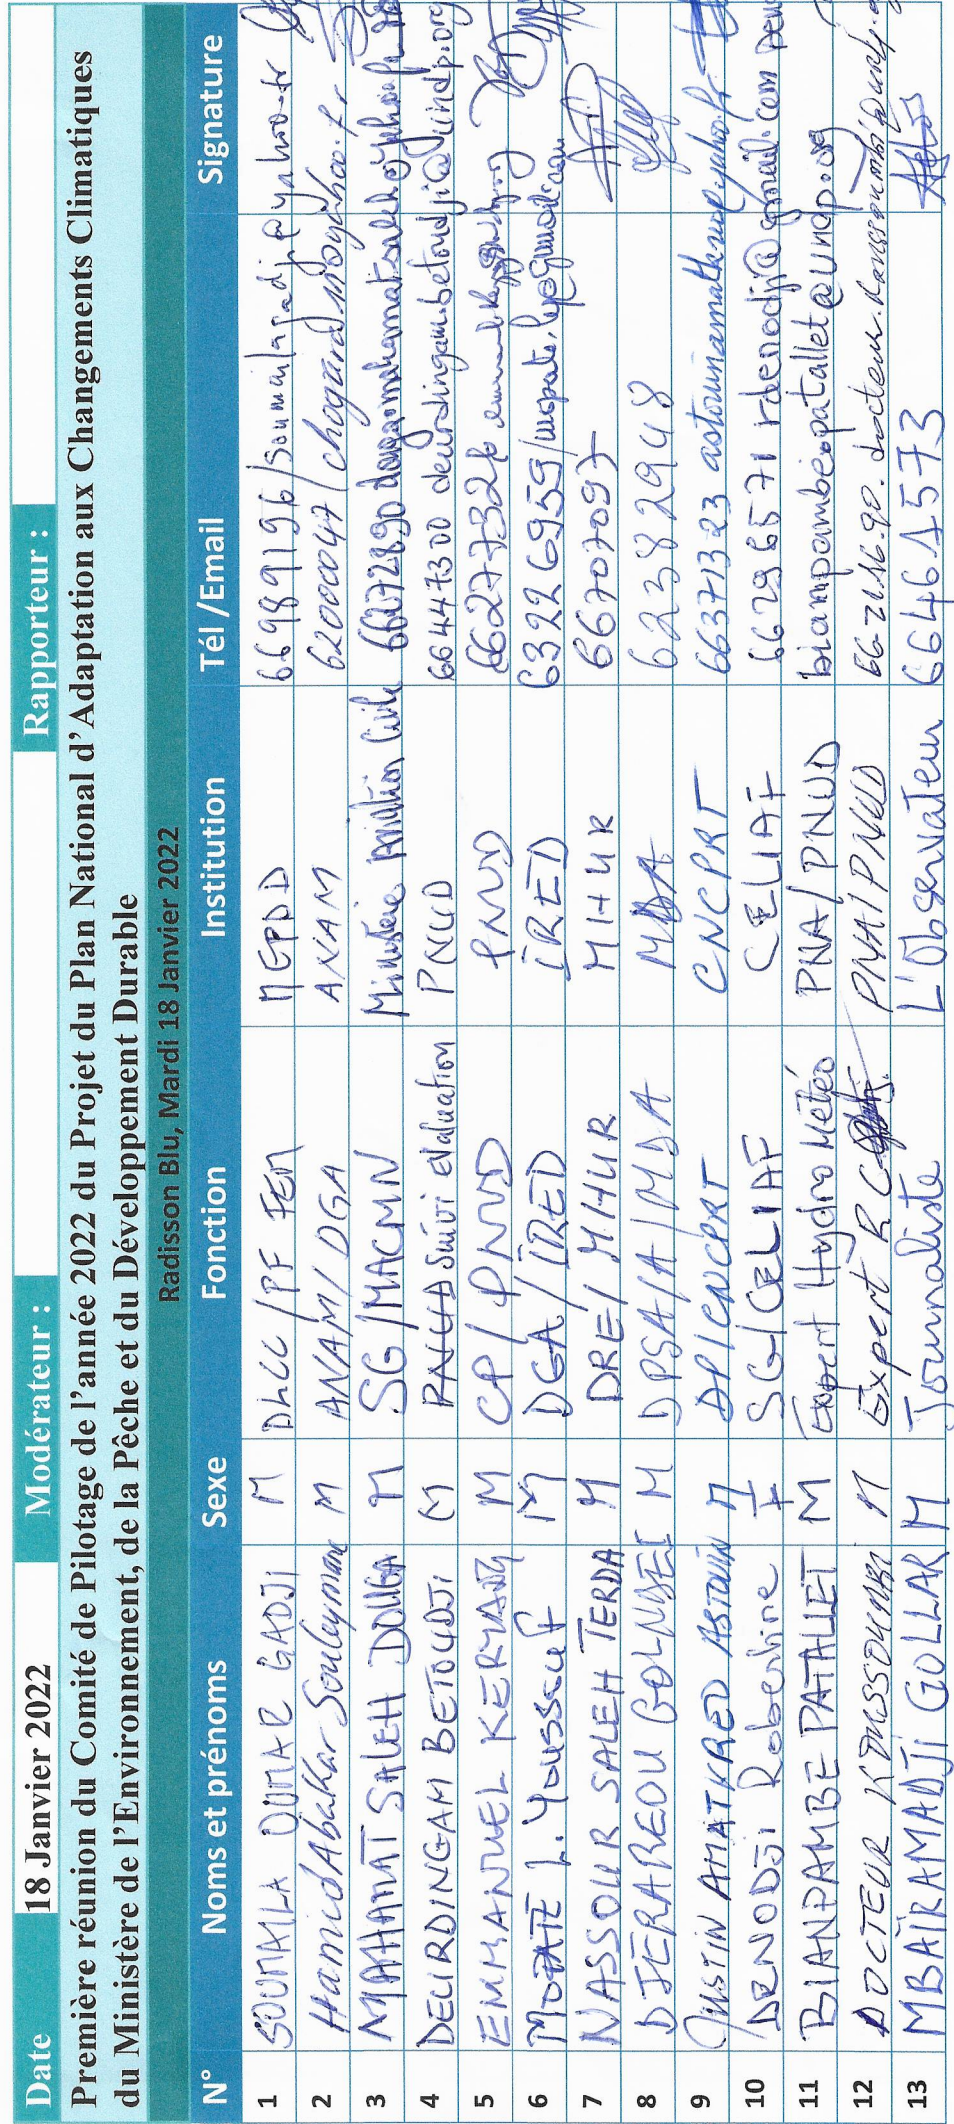 Date 18 Janvier 2022 Modérateur : Rapporteur :
Première réunion du Comité de Pilotage de l'année 2022 du Projet du Plan National d'Adaptation aux Changements Climatiques
du Ministère de l'Environnement, de la Pêche et du Développement Durable
Radisson Blu, Mardi 18 Janvier 2022
N° Noms et prénoms Sexe Fonction Institution Tél /Email Signature
1 SOUMAILA OUMAR GADJI M DLCC /PF FEM MEPDD 66989196/soumailagadji@yahoo.fr
2 Hamid Abakar Souleymane M ANAM/DGA ANAM 62000047/
3 MAHAMAT SALEH DOUNGA M SG/MACMN Ministère Aviation Civile 66072890
4 DEURDINGAM BETOUDJI M PNUD Suivi évaluation PNUD 66447300 deurdingam.betoudji@undp.org
5 EMMANUEL KERMANG M CP/PNUD PNUD 66277326
6 L. Youssouf M DGA/IRED IRED 63226959/
7 NASSOUR SALEH TERDA M DRE/MHUR MHUR 66707097
8 DJERAREOU GOLNDEI M DPSA/A/MDA MDA 62382948
9 JUSTIN AMATKREO ASTOUIN M DP/CNCPRT CNCPRT 66371323
10 DENODJI Roberdine F SG/CELIAF CELIAF 66296571 rdenodji@gmail.com
11 BIANPAMBE PATALLET M Expert HydroMétéo PNA/PNUD bianpambe.patallet@undp.org
12 DOCTEUR KOUSSOUMBI M Expert R PNA/PNUD
13 MBAÏRAMADJI GOLLAR M Journaliste L'Observateur 66461573